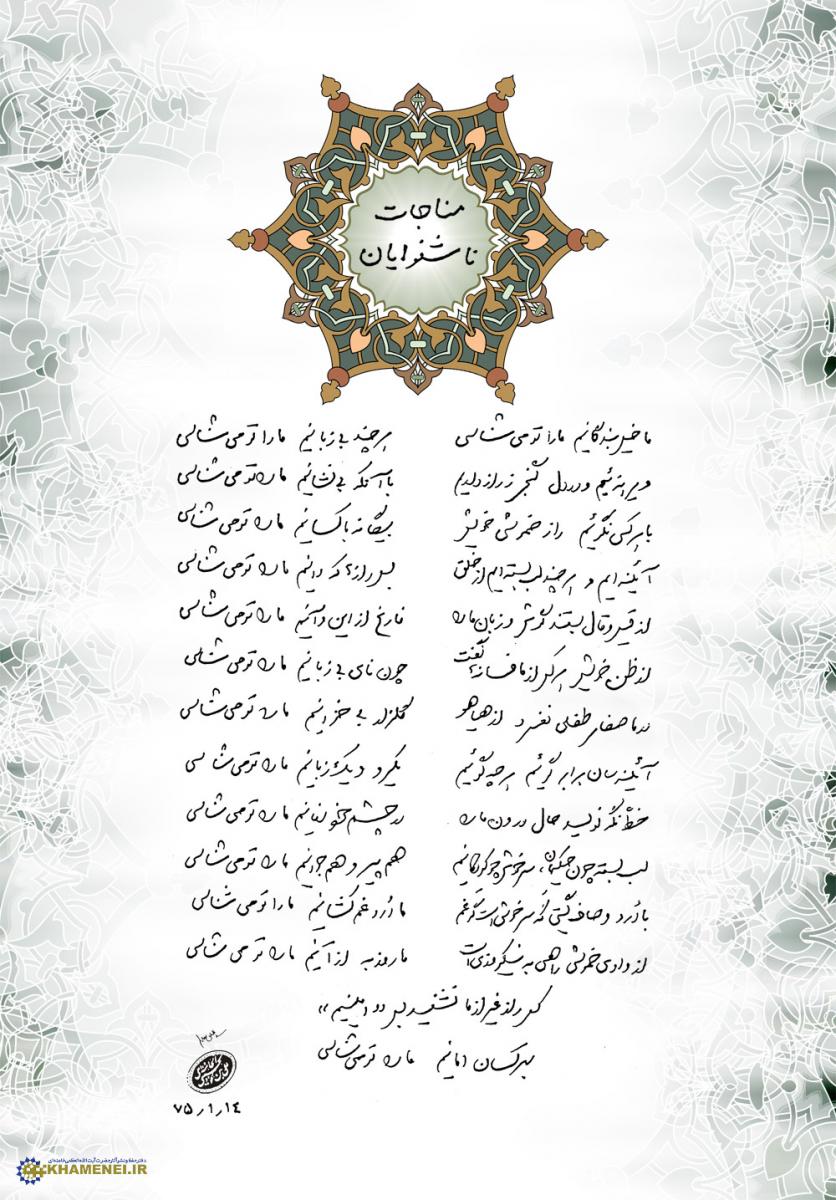 مناجات
ناشنوایان
ما خیل بندگانیم ما را تو می‌شناسی هر چند بی‌زبانیم ما را تو می‌شناسی
ویرانه‌ئیم و در دل گنجی ز راز داریم با آنکه بی‌نشانیم ما را تو می‌شناسی
با هر کسی نگوئیم راز خموشی خویش بیگانه با کسانیم ما را تو می‌شناسی
آئینه‌ایم و هر چند لب بسته‌ایم از خلق بس رازها که دانیم ما را تو می‌شناسی
از قیل و قال بستند گوش و زبان ما را فارغ از این و آنیم ما را تو می‌شناسی
از ظن خویش هر کس از ما فسانه‌ها گفت چون نای بی‌زبانیم ما را تو می‌شناسی
در ما صفای طفلی نفسرد از هیاهو گلزار بی‌خزانیم ما را تو می‌شناسی
آئینه‌سان برابر گوئیم هر چه گوئیم یکرو و یک‌زبانیم ما را تو می‌شناسی
خطّ نگه نویسد حال درون ما را در چشم خود ما را تو می‌شناسی
لب بسته چون حکیمان، سرخوش چو کودکانیم هم پیر و هم جوانیم ما را تو می‌شناسی
با دُرد و صاف گیتی گه سرخوش است گه غم ما دُرد غم کشانیم ما را تو می‌شناسی
از وادی خموشی راهی به نیکروزی است ما روز به از آنیم ما را تو می‌شناسی
کس راز غیر از ما نشنید بس «امینیم»
بهر کسان امانیم ما را تو می‌شناسی
۷۵/۱/۱۴
دفتر حفظ و نشر آثار حضرت آیت‌الله‌العظمی خامنه‌ای
KHAMENEI.IR